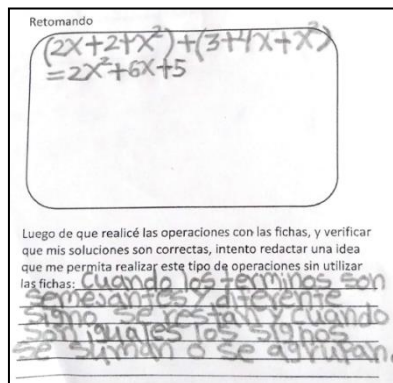 Retomando
(2x+2+x²)+(3+4x+x²)
=2x²+6x+5
Luego de que realicé las operaciones con las fichas, y verificar
que mis soluciones son correctas, intento redactar una idea
que me permita realizar este tipo de operaciones sin utilizar
las fichas: Cuando los terminos son
semejantes y diferente
signo se restan y cuando
son iguales los signos
se suman o se agrupan.